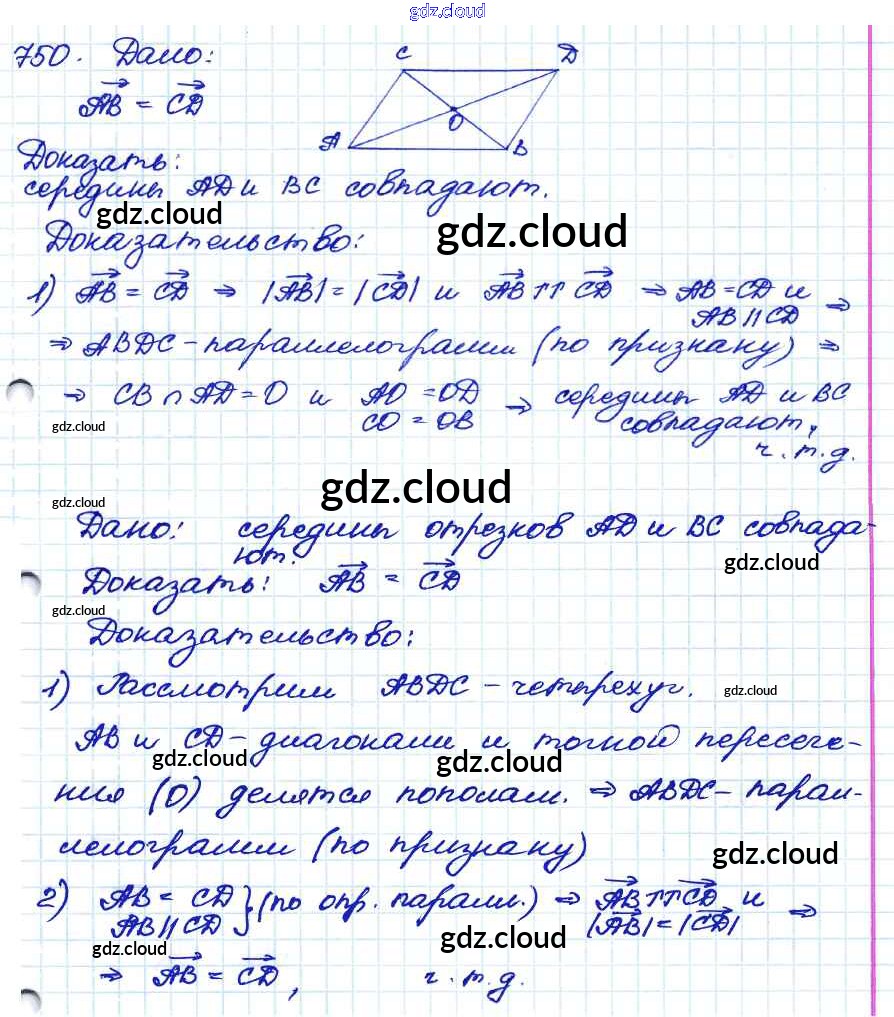 gdz.cloud
750. Дано:
C D
AB = CD
O
A B
Доказать:
середины AD и BC совпадают.
gdz.cloud
Доказательство:
gdz.cloud
1) AB = CD ⇒ |AB| = |CD| и AB ↑↑ CD ⇒ AB = CD и
AB || CD ⇒
⇒ ABDC - параллелограмм (по признаку) ⇒
⇒ CB ∩ AD = O и AO = OD
CO = OB ⇒ середины AD и BC
совпадают,
gdz.cloud
ч.т.д.
gdz.cloud
gdz.cloud
Дано: середины отрезков AD и BC совпада-
ют.
gdz.cloud
Доказать: AB = CD
gdz.cloud
Доказательство:
1) Рассмотрим ABDC - четырехуг.
gdz.cloud
AB и CD - диагонали и точкой пересече-
gdz.cloud
gdz.cloud
ния (O) делятся пополам. ⇒ ABDC - парал-
лелограмм (по признаку)
gdz.cloud
2) AB = CD
AB || CD } (по опр. паралл.) ⇒ AB ↑↑ CD и
|AB| = |CD| ⇒
gdz.cloud
gdz.cloud
⇒ AB = CD, ч.т.д.